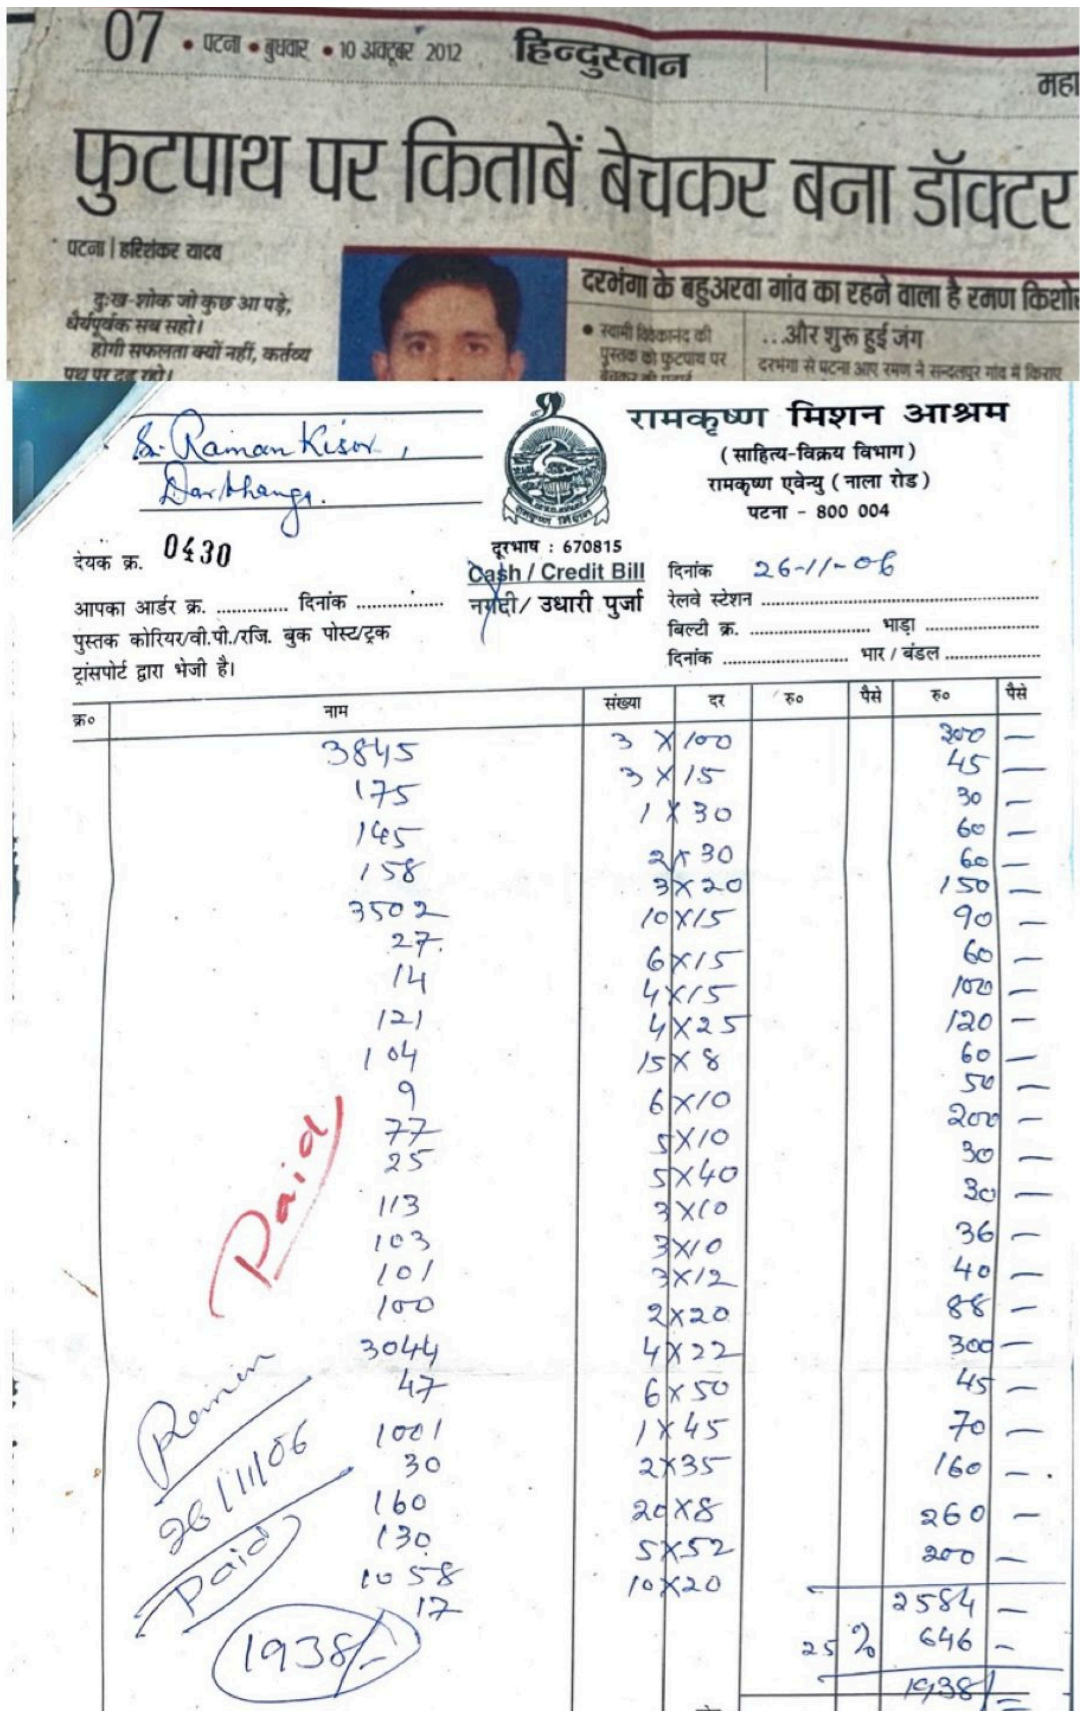 07 • पटना • बुधवार • 10 अक्टूबर 2012 हिन्दुस्तान
महा
फुटपाथ पर किताबें बेचकर बना डॉक्टर
पटना | हरिशंकर यादव
दुःख-शोक जो कुछ आ पड़े,
धैर्यपूर्वक सब सहो।
होगी सफलता क्यों नहीं, कर्तव्य
पथ पर दृढ़ रहो।
दरभंगा के बहुअरवा गांव का रहने वाला है रमण किशोर
• स्वामी विवेकानंद की
पुस्तक को फुटपाथ पर
बेचकर की पढ़ाई
...और शुरू हुई जंग
दरभंगा से पटना आए रमण ने सन्दलपुर गांव में किराए
Sr. Raman Kisor,
Darbhanga.
रामकृष्ण मिशन आश्रम
(साहित्य-विक्रय विभाग)
रामकृष्ण एवेन्यु (नाला रोड)
पटना - 800 004
रामकृष्ण मिशन
देयक क्र. 0430
दूरभाष : 670815
Cash / Credit Bill
नगदी/ उधारी पुर्जा
दिनांक 26-11-06
आपका आर्डर क्र. ............ दिनांक ...............
रेलवे स्टेशन
पुस्तक कोरियर/वी.पी./रजि. बुक पोस्ट/ट्रक
बिल्टी क्र. ............ भाड़ा ............
ट्रांसपोर्ट द्वारा भेजी है।
दिनांक ............ भार / बंडल ............
क्र० नाम संख्या दर रु० पैसे रु० पैसे
3845 3 X 100 300 —
175 3 X 15 45 —
145 1 X 30 30 —
158 2 X 30 60 —
3502 3 X 20 60 —
27. 10 X 15 150 —
14 6 X 15 90 —
121 4 X 15 60 —
104 4 X 25 100 —
9 15 X 8 120 —
77 6 X 10 60 —
25 5 X 10 50 —
113 5 X 40 200 —
103 3 X 10 30 —
101 3 X 10 30 —
100 3 X 12 36 —
3044 2 X 20 40 —
47 4 X 22 88 —
1001 6 X 50 300 —
30 1 X 45 45 —
160 2 X 35 70 —
130 20 X 8 160 —
1058 5 X 52 260 —
17 10 X 20 200 —
2584 —
25 % 646 —
1938/—
Paid
Raman
26/11/06
Paid
1938/-